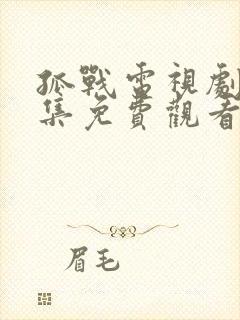 孤戰雷視劇
集免費觀看
眉毛